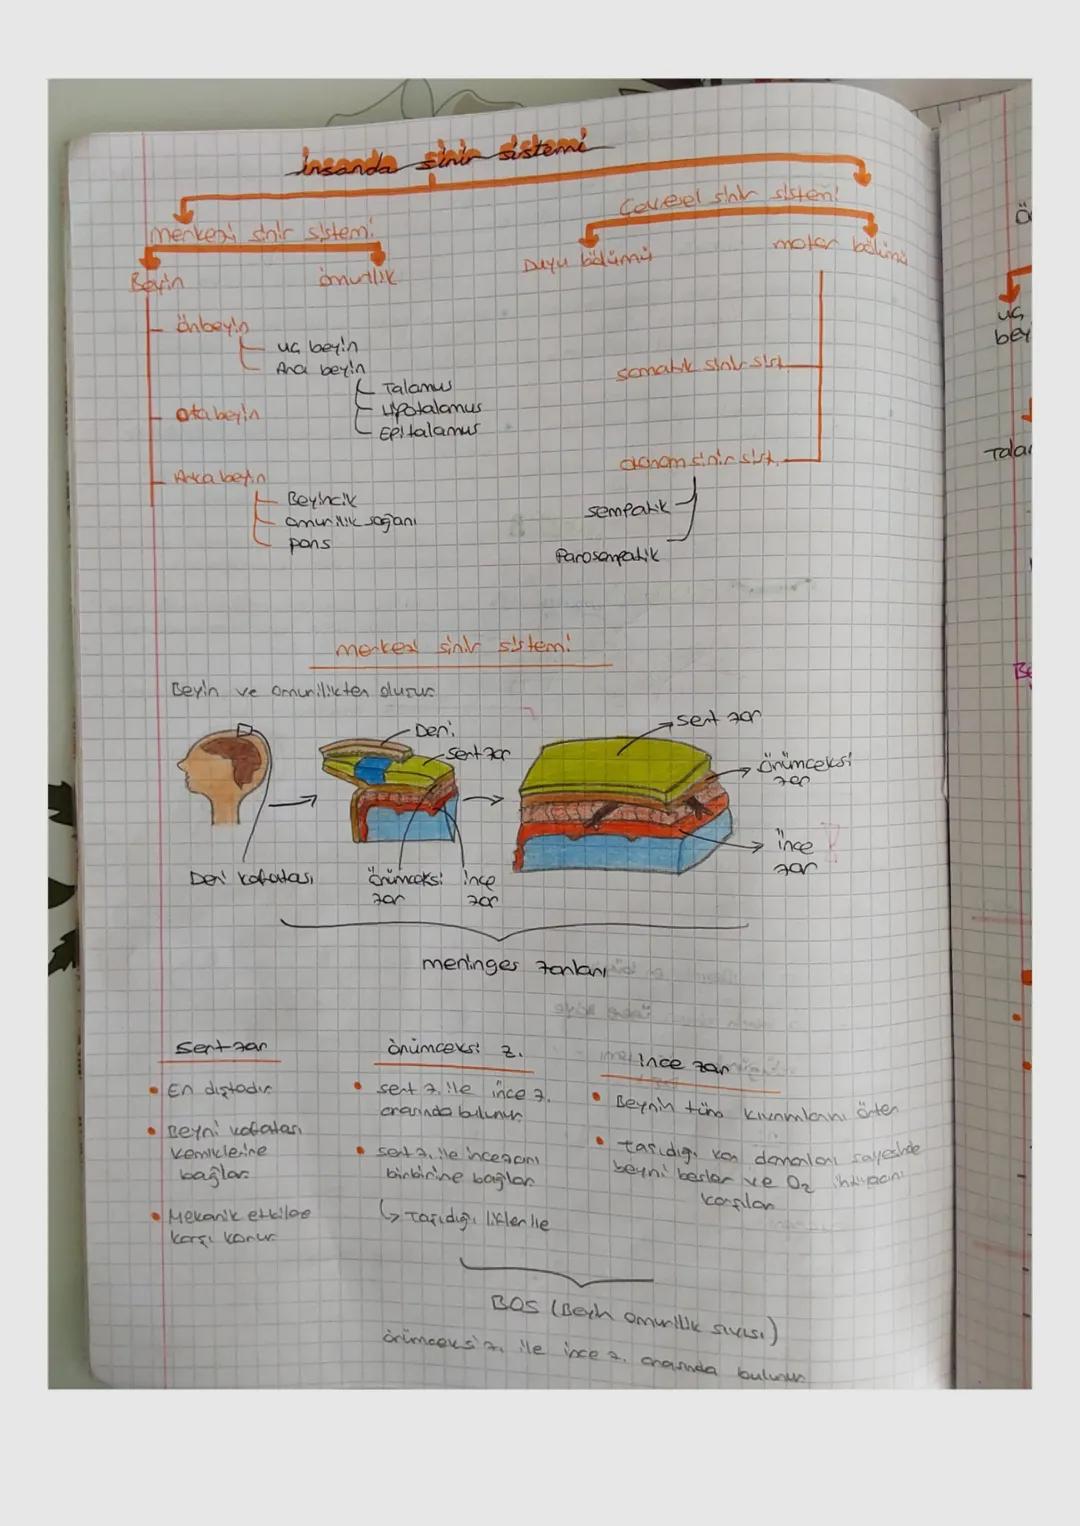 insanda sinir sistemi
Çevresel sinir sistemi
merkezi sinir sistemi
Duyu bölümü
motor bölümü
Beyin
omurilik
önbeyin
uç beyin
Ara beyin
Talamus
Hipotalamus
Epitalamus
orta beyin
Arka beyin
Beyincik
omurilik soğanı
pons
somatik sinir sist.
otonom sinir sist.
sempatik
Parasempatik
merkezi sinir sistemi
Beyin ve omurilikten oluşur
Deri
Sert zar
Deri kafatası
örümceksi zar
ince zar
sert zar
örümceksi
zar
ince
zar
meninges zarları
Sert zar
• En dıştadır
• Beyni kafatası
kemiklerine
bağlar.
• Mekanik etkilere
karşı korur
örümceksi z.
• sert z. ile ince z.
arasında bulunur.
• sert z. ile ince zarı
birbirine bağlar.
↳ Taşıdığı lifler ile
İnce zar
• Beynin tüm kıvrımlarını örter
• taşıdığı kan damarları sayesinde
beyni besler ve O2 ihtiyacını
karşılar
BOS (Beyin omurilik sıvısı)
örümceksi z. ile ince z. arasında bulunur.
uç
bey